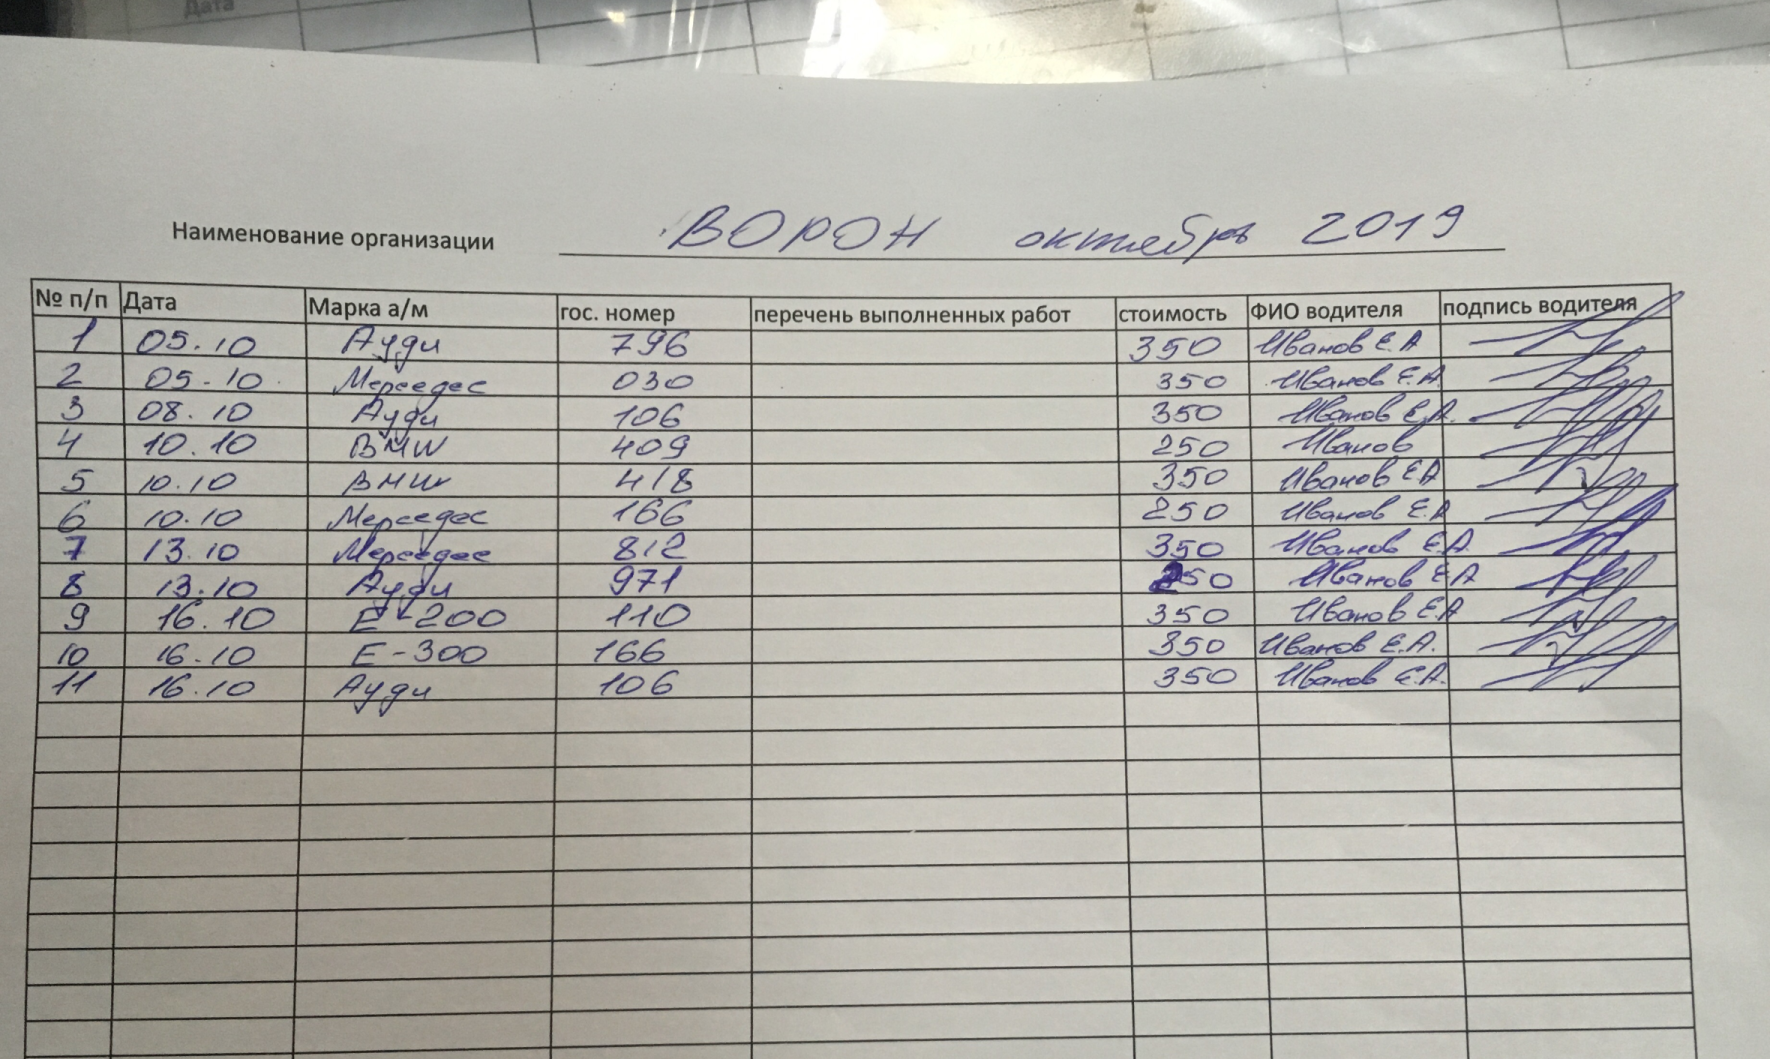 Дата
Наименование организации ВОРОН октябрь 2019
№ п/п Дата Марка а/м гос. номер перечень выполненных работ стоимость ФИО водителя подпись водителя
1 05.10 Ауди 796 350 Иванов Е.А
2 05-10. Мерседес 030 350 Иванов Е.А
3 08.10 Ауди 106 350 Иванов Е.А.
4 10.10 BMW 409 250 Иванов
5 10.10 BMW 418 350 Иванов ЕА
6 10.10 Мерседес 166 250 Иванов Е.А
7 13.10 Мерседес 812 350 Иванов Е.А.
8 13.10 Ауди 971 250 Иванов Е А
9 16.10 Е-200 110 350 Иванов Е.А
10 16.10 Е-300 166 350 Иванов Е.А.
11 16.10 Ауди 106 350 Иванов Е.А.